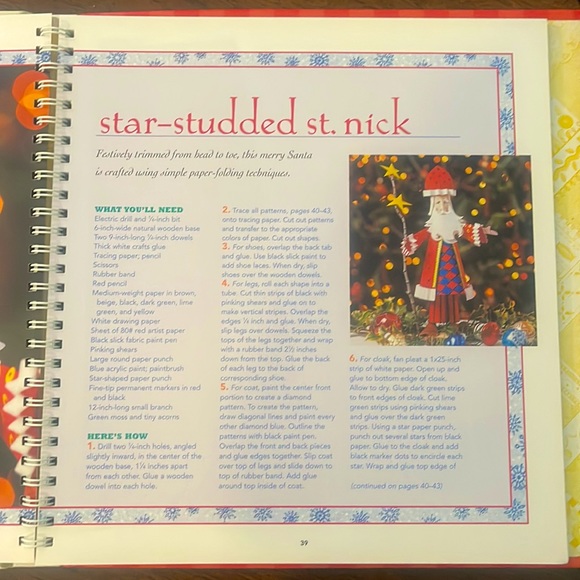 star-studded st. nick
Festively trimmed from head to toe, this merry Santa
is crafted using simple paper-folding techniques.
WHAT YOU'LL NEED
Electric drill and ¼-inch bit
6-inch-wide natural wooden base
Two 9-inch-long ¼-inch dowels
Thick white crafts glue
Tracing paper; pencil
Scissors
Rubber band
Red pencil
Medium-weight paper in brown,
beige, black, dark green, lime
green, and yellow
White drawing paper
Sheet of 80# red artist paper
Black slick fabric paint pen
Pinking shears
Large round paper punch
Blue acrylic paint; paintbrush
Star-shaped paper punch
Fine-tip permanent markers in red
and black
12-inch-long small branch
Green moss and tiny acorns
HERE'S HOW
1. Drill two ¼-inch holes, angled
slightly inward, in the center of the
wooden base, 1¼ inches apart
from each other. Glue a wooden
dowel into each hole.
2. Trace all patterns, pages 40–43,
onto tracing paper. Cut out patterns
and transfer to the appropriate
colors of paper. Cut out shapes.
3. For shoes, overlap the back tab
and glue. Use black slick paint to
add shoe laces. When dry, slip
shoes over the wooden dowels.
4. For legs, roll each shape into a
tube. Cut thin strips of black with
pinking shears and glue on to
make vertical stripes. Overlap the
edges ¼ inch and glue. When dry,
slip legs over dowels. Squeeze the
tops of the legs together and wrap
with a rubber band 2½ inches
down from the top. Glue the back
of each leg to the back of
corresponding shoe.
5. For coat, paint the center front
portion to create a diamond
pattern. To create the pattern,
draw diagonal lines and paint every
other diamond blue. Outline the
patterns with black paint pen.
Overlap the front and back pieces
and glue edges together. Slip coat
over top of legs and slide down to
top of rubber band. Add glue
around top inside of coat.
6. For cloak, fan pleat a 1x25-inch
strip of white paper. Open up and
glue to bottom edge of cloak.
Allow to dry. Glue dark green strips
to front edges of cloak. Cut lime
green strips using pinking shears
and glue over the dark green
strips. Using a star paper punch,
punch out several stars from black
paper. Glue to the cloak and add
black marker dots to encircle each
star. Wrap and glue top edge of
(continued on pages 40–43)
39